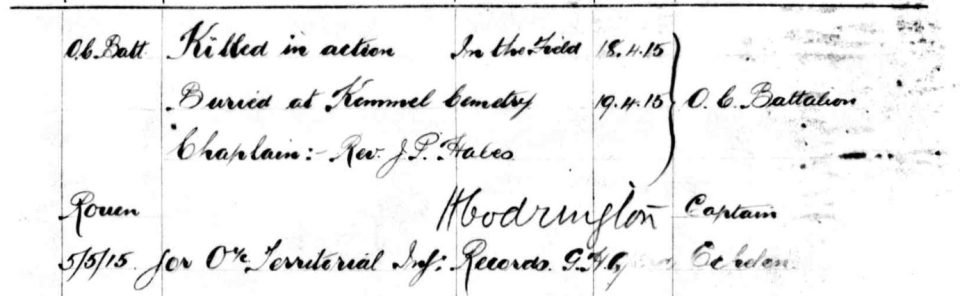 O.C. Batt. Killed in action In the Field 18.4.15
Buried at Kemmel Cemetry 19.4.15 O.C. Battalion
Chaplain:- Rev. J.P. Hales
Rouen Codrington Captain
5/5/15. for O i/c Territorial Inf: Records. G.H.Q. Echelon.